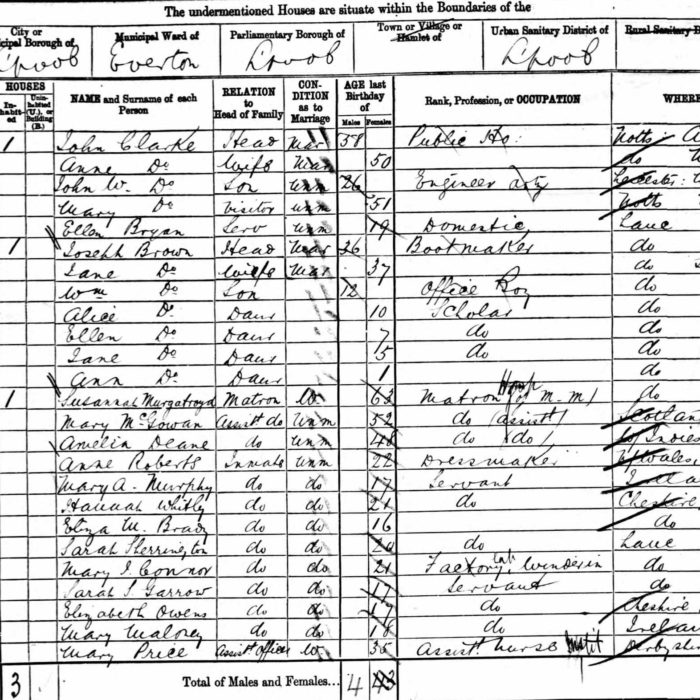 The undermentioned Houses are situate within the Boundaries of the
City or Municipal Ward of Parliamentary Borough of Town or Village or Urban Sanitary District of Rural Sanitary
cipal Borough of Hamlet of
Lpool Everton Lpool Lpool
HOUSES NAME and Surname of each Person RELATION to Head of Family CONDITION as to Marriage AGE last Birthday of Rank, Profession, or OCCUPATION WHERE
Inhabited Uninhabited (U.), or Building (B.) Males Females
1 John Clarke Head Mar 58 Public Ho: Notts:
Anne Do Wife Mar 50 do
John W. Do Son unm 26 Engineer Leicester:
Mary Do Visitor unm 51 Notts
Ellen Bryan Serv unm 19 Domestic Lanc
1 Joseph Brown Head Mar 36 Bootmaker do
Jane Do Wife Mar 37 do
Wm Do Son 12 Office Boy do
Alice Do Daur 10 Scholar do
Ellen Do Daur 7 do do
Jane Do Daur 5 do do
Ann Do Daur 1 do
1 Susannah Murgatroyd Matron W 63 Matron do
Mary McGowan Assist do Unm 52 do (assist) Scotland
Amelia Deane do unm 48 do (do) W Indies
Anne Roberts Inmate unm 22 Dressmaker N Wales
Mary A. Murphy do do 17 Servant
Hannah Whitly do do 21 do Cheshire
Eliza M. Brady do do 16 do
Sarah Sherrington do do 20 do Lanc
Mary J Connor do do 21 Factory do
Sarah J Garrow do do 17 Servant do
Elizabeth Owens do do 17 do Cheshire
Mary Maloney do do 18 do Irelan
Mary Price Assist officer W 35 Assist. nurse Derbyshi
3 Total of Males and Females... 4